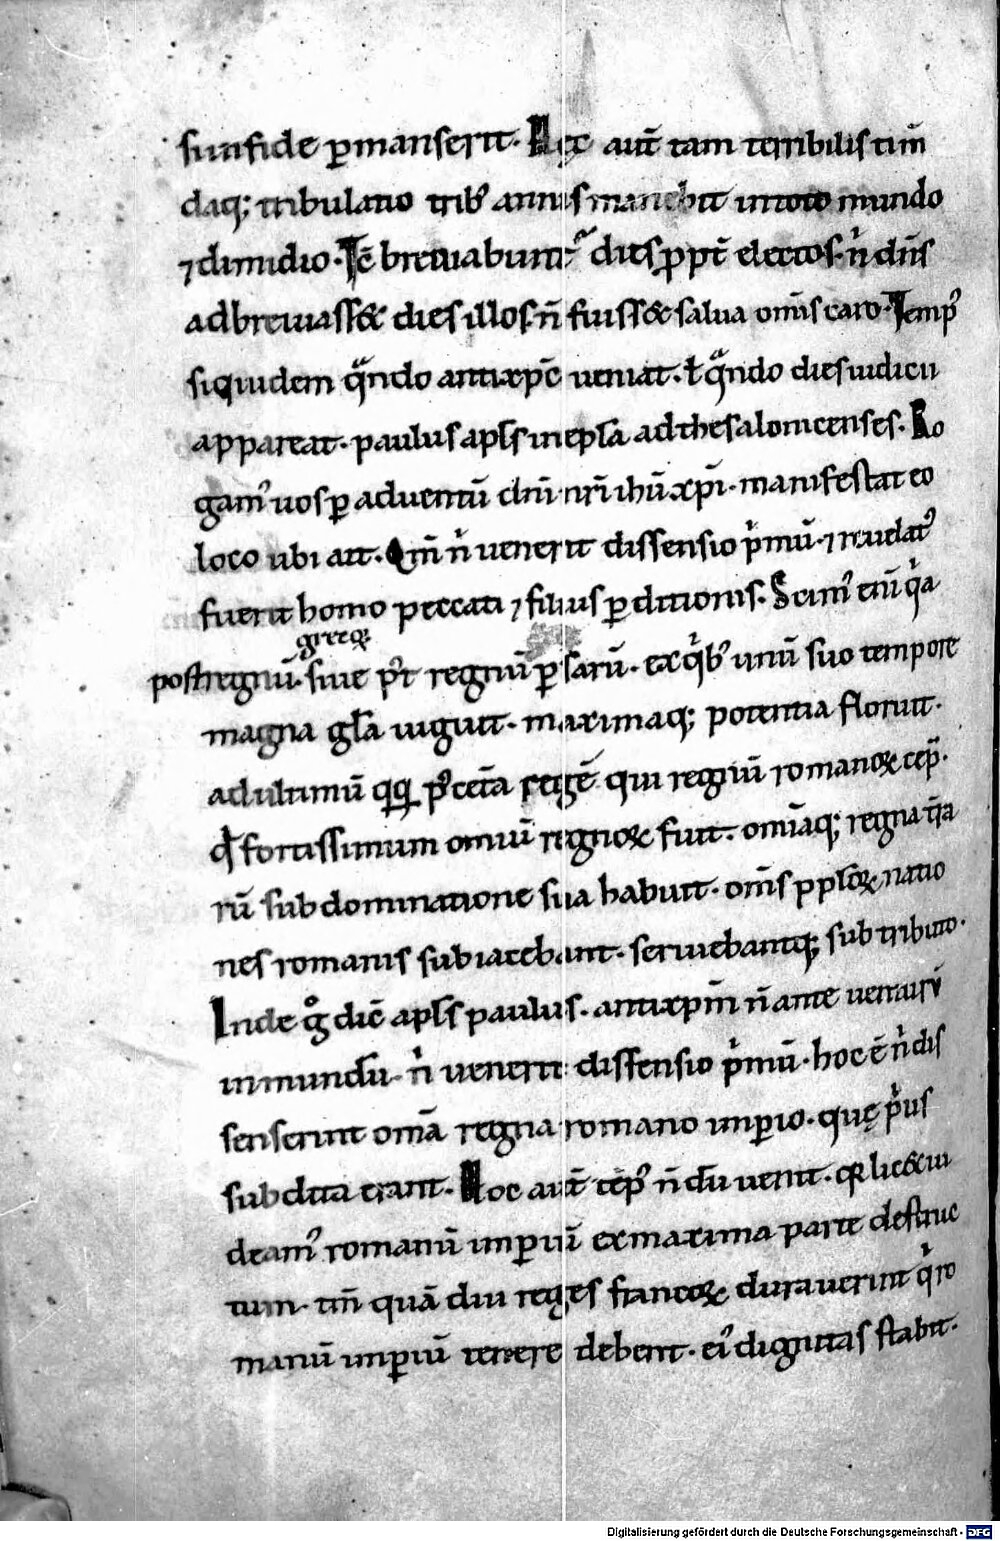 sui in fide ꝑmanserit. Hec aut̄ tam terribilis tim̄
daq; tribulatio trib᷒ annis manebit intoto mundo
⁊ dimidio. Tc̄ breviabunt᷑ dies ꝓpt̄ electos. n̄ dn̄s
adbreviass& dies illos. n̄ fuiss& salua om̄s caro. Temp᷒
siquidem qͣndo antixp̄c veniat. ł qͣndo dies iudicii
appareat. paulus apl̄s in epl̄a ad thesalonicenses. Ro
gam᷒ uos ꝑ aduentū dn̄i nr̄i ihū xp̄i. manifestat eo
loco ubi ait. Qm̄ n̄ uenerit dissensio pͥmū. ⁊ reuelat᷒
fuerit homo peccati ⁊ filius ꝑditionis. Scim᷒ eni̅ qͥa
grecoꝝ
post regnū. siue p᷒t regnū ꝑsarū. ex qͥb᷒ unū suo tempore
magna gl̄a uiguit. maximaq; potentia floruit.
ad ultimū qq; p᷒ cet̄a regē qui regnū romanoꝝ cep̄.
qd̄ fortissimum omniū regnoꝝ fuit. omīaq; regna t̄ra
rū sub dominatione sua habuit. om̄s ppl̄oꝝ natio
nes romanis subiacebant. seruiebantq; sub tributo.
Inde gͦ dic̄ apl̄s paulus. antixpm̄ n̄ ante uenturū
in mundū. nͥ uenerit dissensio pͥmū. hoc ē nͥ dis
senserint om̄a regna romano imꝑio. quę pͥus
subdita erant. Hoc aut̄ tēp᷒ n̄ dū uenit. q̄ lic& ui
deam᷒ romanū imꝑiū ex maxima parte destruc
tum. tm̄ quādiu reges francoꝝ durauerint qͥ ro
manū imꝑiū tenere debent. ei᷒ dignitas stabit.
Digitalisierung gefördert durch die Deutsche Forschungsgemeinschaft - DFG